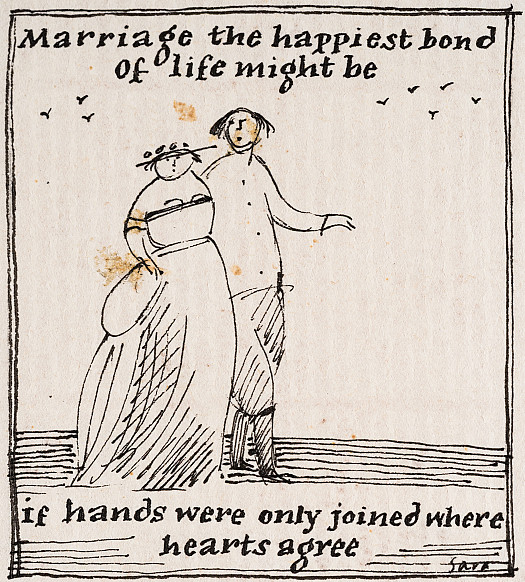 Marriage the happiest bond
Of life might be
if hands were only joined where
hearts agree
Sara